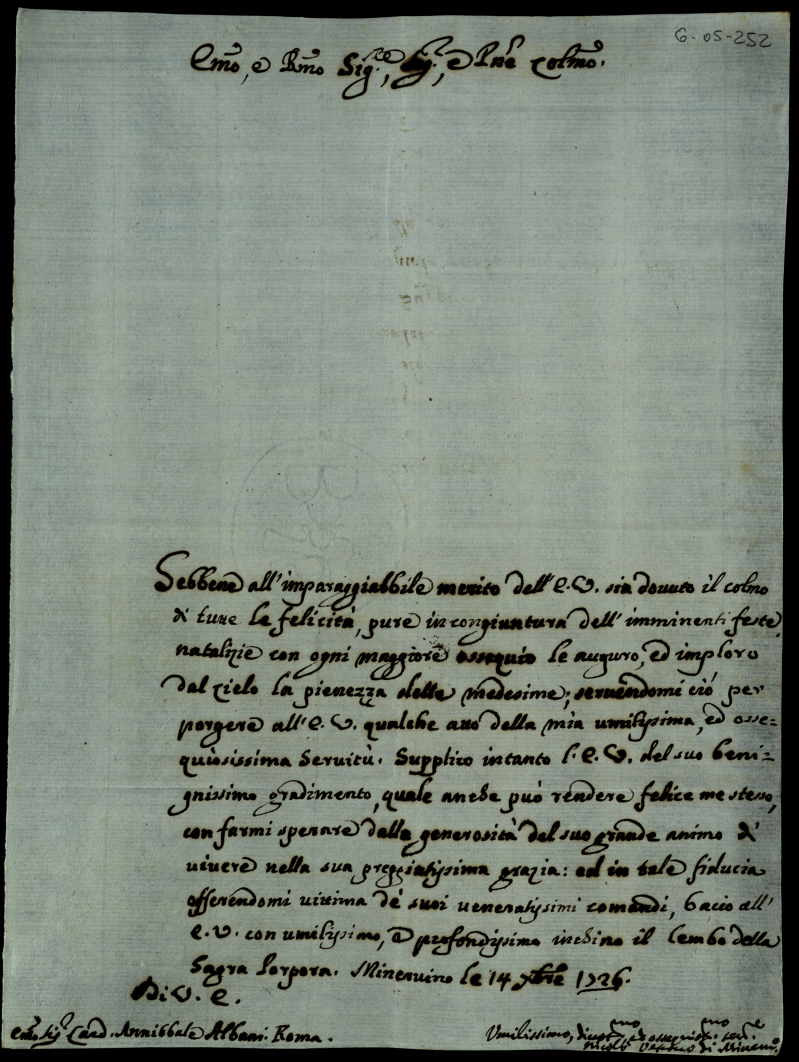 6-05-252
Emo, e Rmo Sig.re, Sig.re, e Pne Colmo.
Sebbene all'imparaggiabbile merito dell'E.V. sia dovuto il colmo
di tutte le felicità, pure in congiuntura dell'imminenti feste
natalizie con ogni maggiore ossequio le auguro, ed imploro
dal cielo la pienezza delle medesime; servendomi ciò per
porgere all'E.V. qualche atto della mia umilissima, ed osse=
quiosissima Servitù. Supplico intanto l'E.V. del suo beni=
gnissimo gradimento, quale anche può rendere felice me stesso,
con farmi sperare dalla generosità del suo grande animo di
vivere nella sua preggiatissima grazia: ed in tale fiducia
offerendomi vittima de' suoi veneratissimi comandi, bacio all'
E.V. con umilissimo, e profondissimo inchino il lembo della
Sagra Porpora. Minervino le 14 Xbre 1726.
Di V. E.
Emo Sig.r Card. Annibbale Albani. Roma.
Umilissimo, divotmo ed osseqmo serve
Nicolò Vescovo di Minerv.